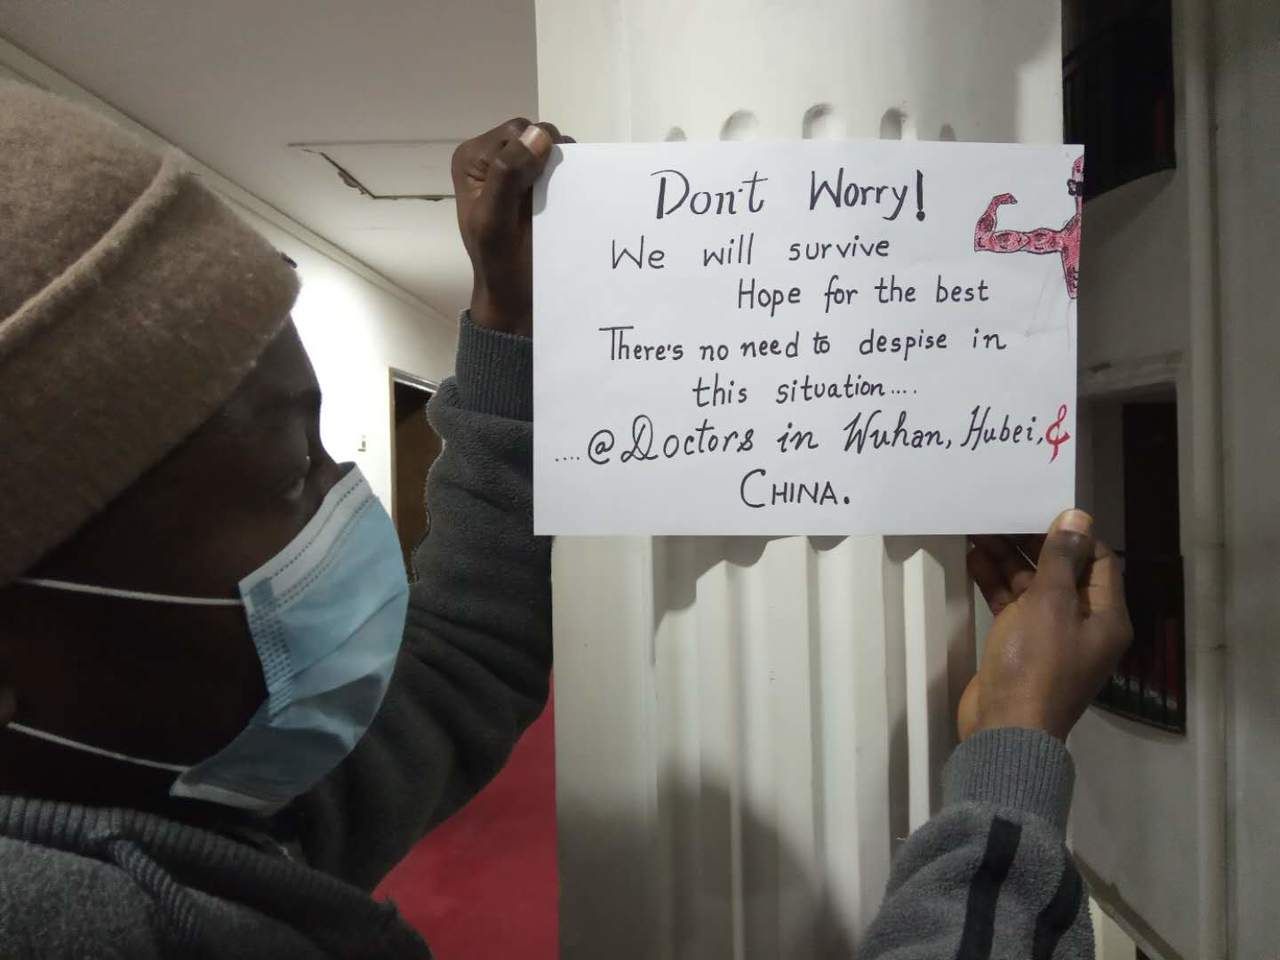 Don't Worry!
We will survive
Hope for the best
There's no need to despise in
this situation....
....@Doctors in Wuhan, Hubei, &
CHINA.